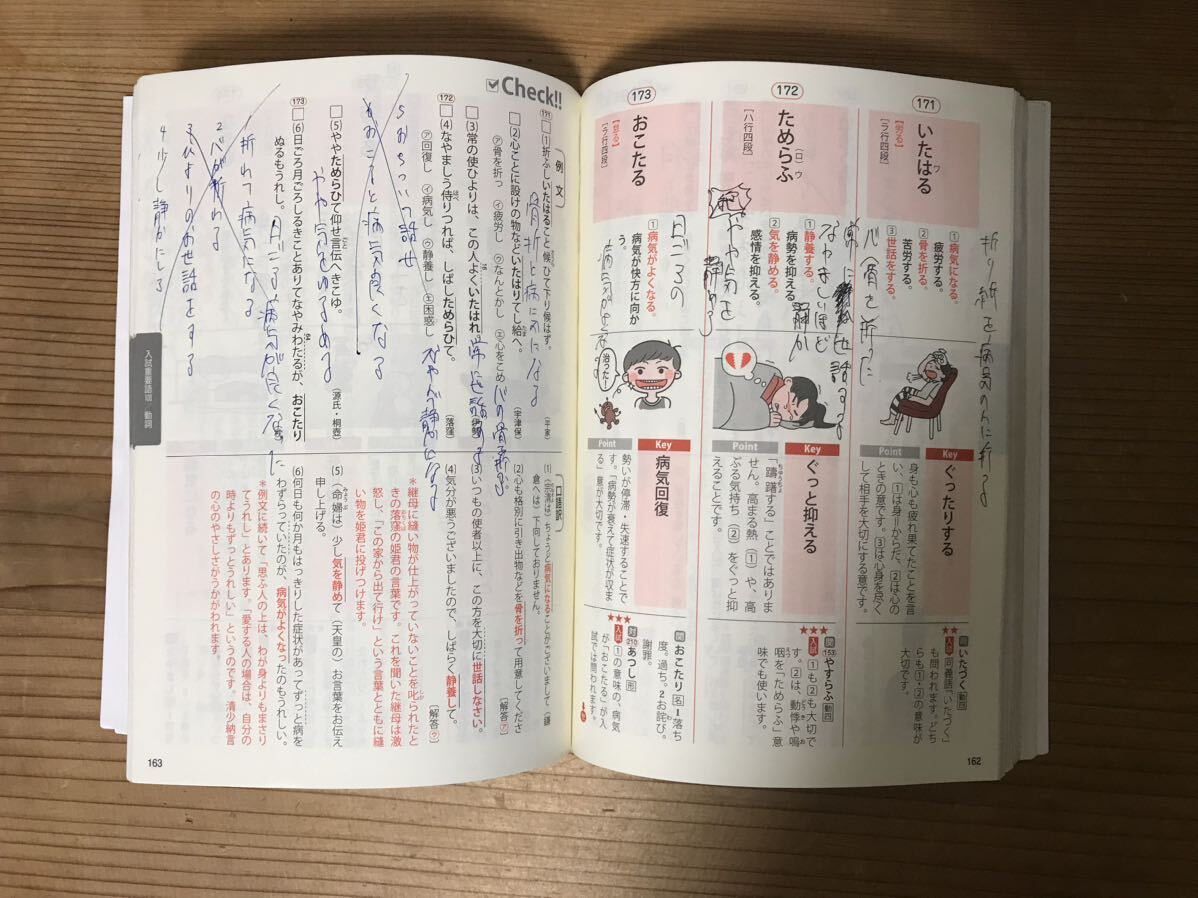 171
いたはる
ワ
【労る】
[ラ行四段]
①病気になる。
疲労する。
②骨を折る。
苦労する。
③世話をする。
Key
ぐったりする
Point
身も心も疲れ果てたことを言
い、①は身=からだ、②は心の
ときの意です。③は心身を尽く
して相手を大切にする意です。
★★
関 いたづく 動四
入試 同義語「いたづく」
も問われます。どち
らも①・②の意味が
大切です。
172
ためらふ
(ロ)ウ
[ハ行四段]
①静養する。
病勢を抑える。
②気を静める。
感情を抑える。
Key
ぐっと抑える
Point
「躊躇する」ことではありま
ちゅうちょ
せん。高まる熱(①)や、高
ぶる気持ち(②)をぐっと抑
えることです。
★★★
関 153 やすらふ 動四
入試 ①も②も大切で
す。②は、動悸や嗚
咽を「ためらふ」意
味でも使います。
173
おこたる
【怠る】
[ラ行四段]
①病気がよくなる。
病気が快方に向か
う。
治ったー!
Key
病気回復
Point
勢いが停滞・失速することで
す。「病勢が衰えて症状が収ま
る」意が大切です。
★★★
関 おこたり 名 1落ち
度。過ち。2お詫び。
謝罪。
対 210 あつし 形
入試 ①の意味の、病気
が「おこたる」が入
試では問われます。
162
Check!!
〔例文〕
171
(1)折ふしいたはること候ひて下り候はず。
(平家)
骨折と病気になる
(2)心ことに設けの物などいたはりてし給へ。
(宇津保)
㋐骨を折っ ㋑疲労し ㋒なんとかし ㋓心をこめ
(3)常の使ひよりは、この人よくいたはれ
172
(4)なやましう侍りつれば、しばしためらひて。
(落窪)
㋐回復し ㋑病気し ㋒静養し ㋓困惑し
(5)ややためらひて仰せ言伝へきこゆ。
(源氏・桐壺)
173
(6)日ごろ月ごろしるきことありてなやみわたるが、おこたり
ぬるもうれし。
〔口語訳〕
(1)(宗清は)ちょうど病気になることがございまして(鎌
倉へは)下向しておりません。
(2)心も格別に引き出物などを骨を折って用意してくださ
い。
[解答㋐]
(3)いつもの使者以上に、この方を大切に世話しなさい。
(4)気分が悪うございましたので、しばらく静養して。
[解答㋒]
*継母に縫い物が仕上がっていないことを叱られたと
きの落窪の姫君の言葉です。これを聞いた継母は激
怒し、「この家から出て行け」という言葉とともに縫
い物を姫君に投げつけます。
(5)(命婦は)少し気を静めて(天皇の)お言葉をお伝え
申し上げる。
(6)何日も何か月もはっきりした症状があってずっと病を
わずらっていたのが、病気がよくなったのもうれしい。
*例文に続いて「思ふ人の上は、わが身よりもまさり
てうれし」とあります。「愛する人の場合は、自分の
時よりもずっとうれしい」というのです。清少納言
の心のやさしさがうかがわれます。
入試重要語Ⅷ 動詞
163
折れて病気になる
2 心が折れる
4 少し静かにしる